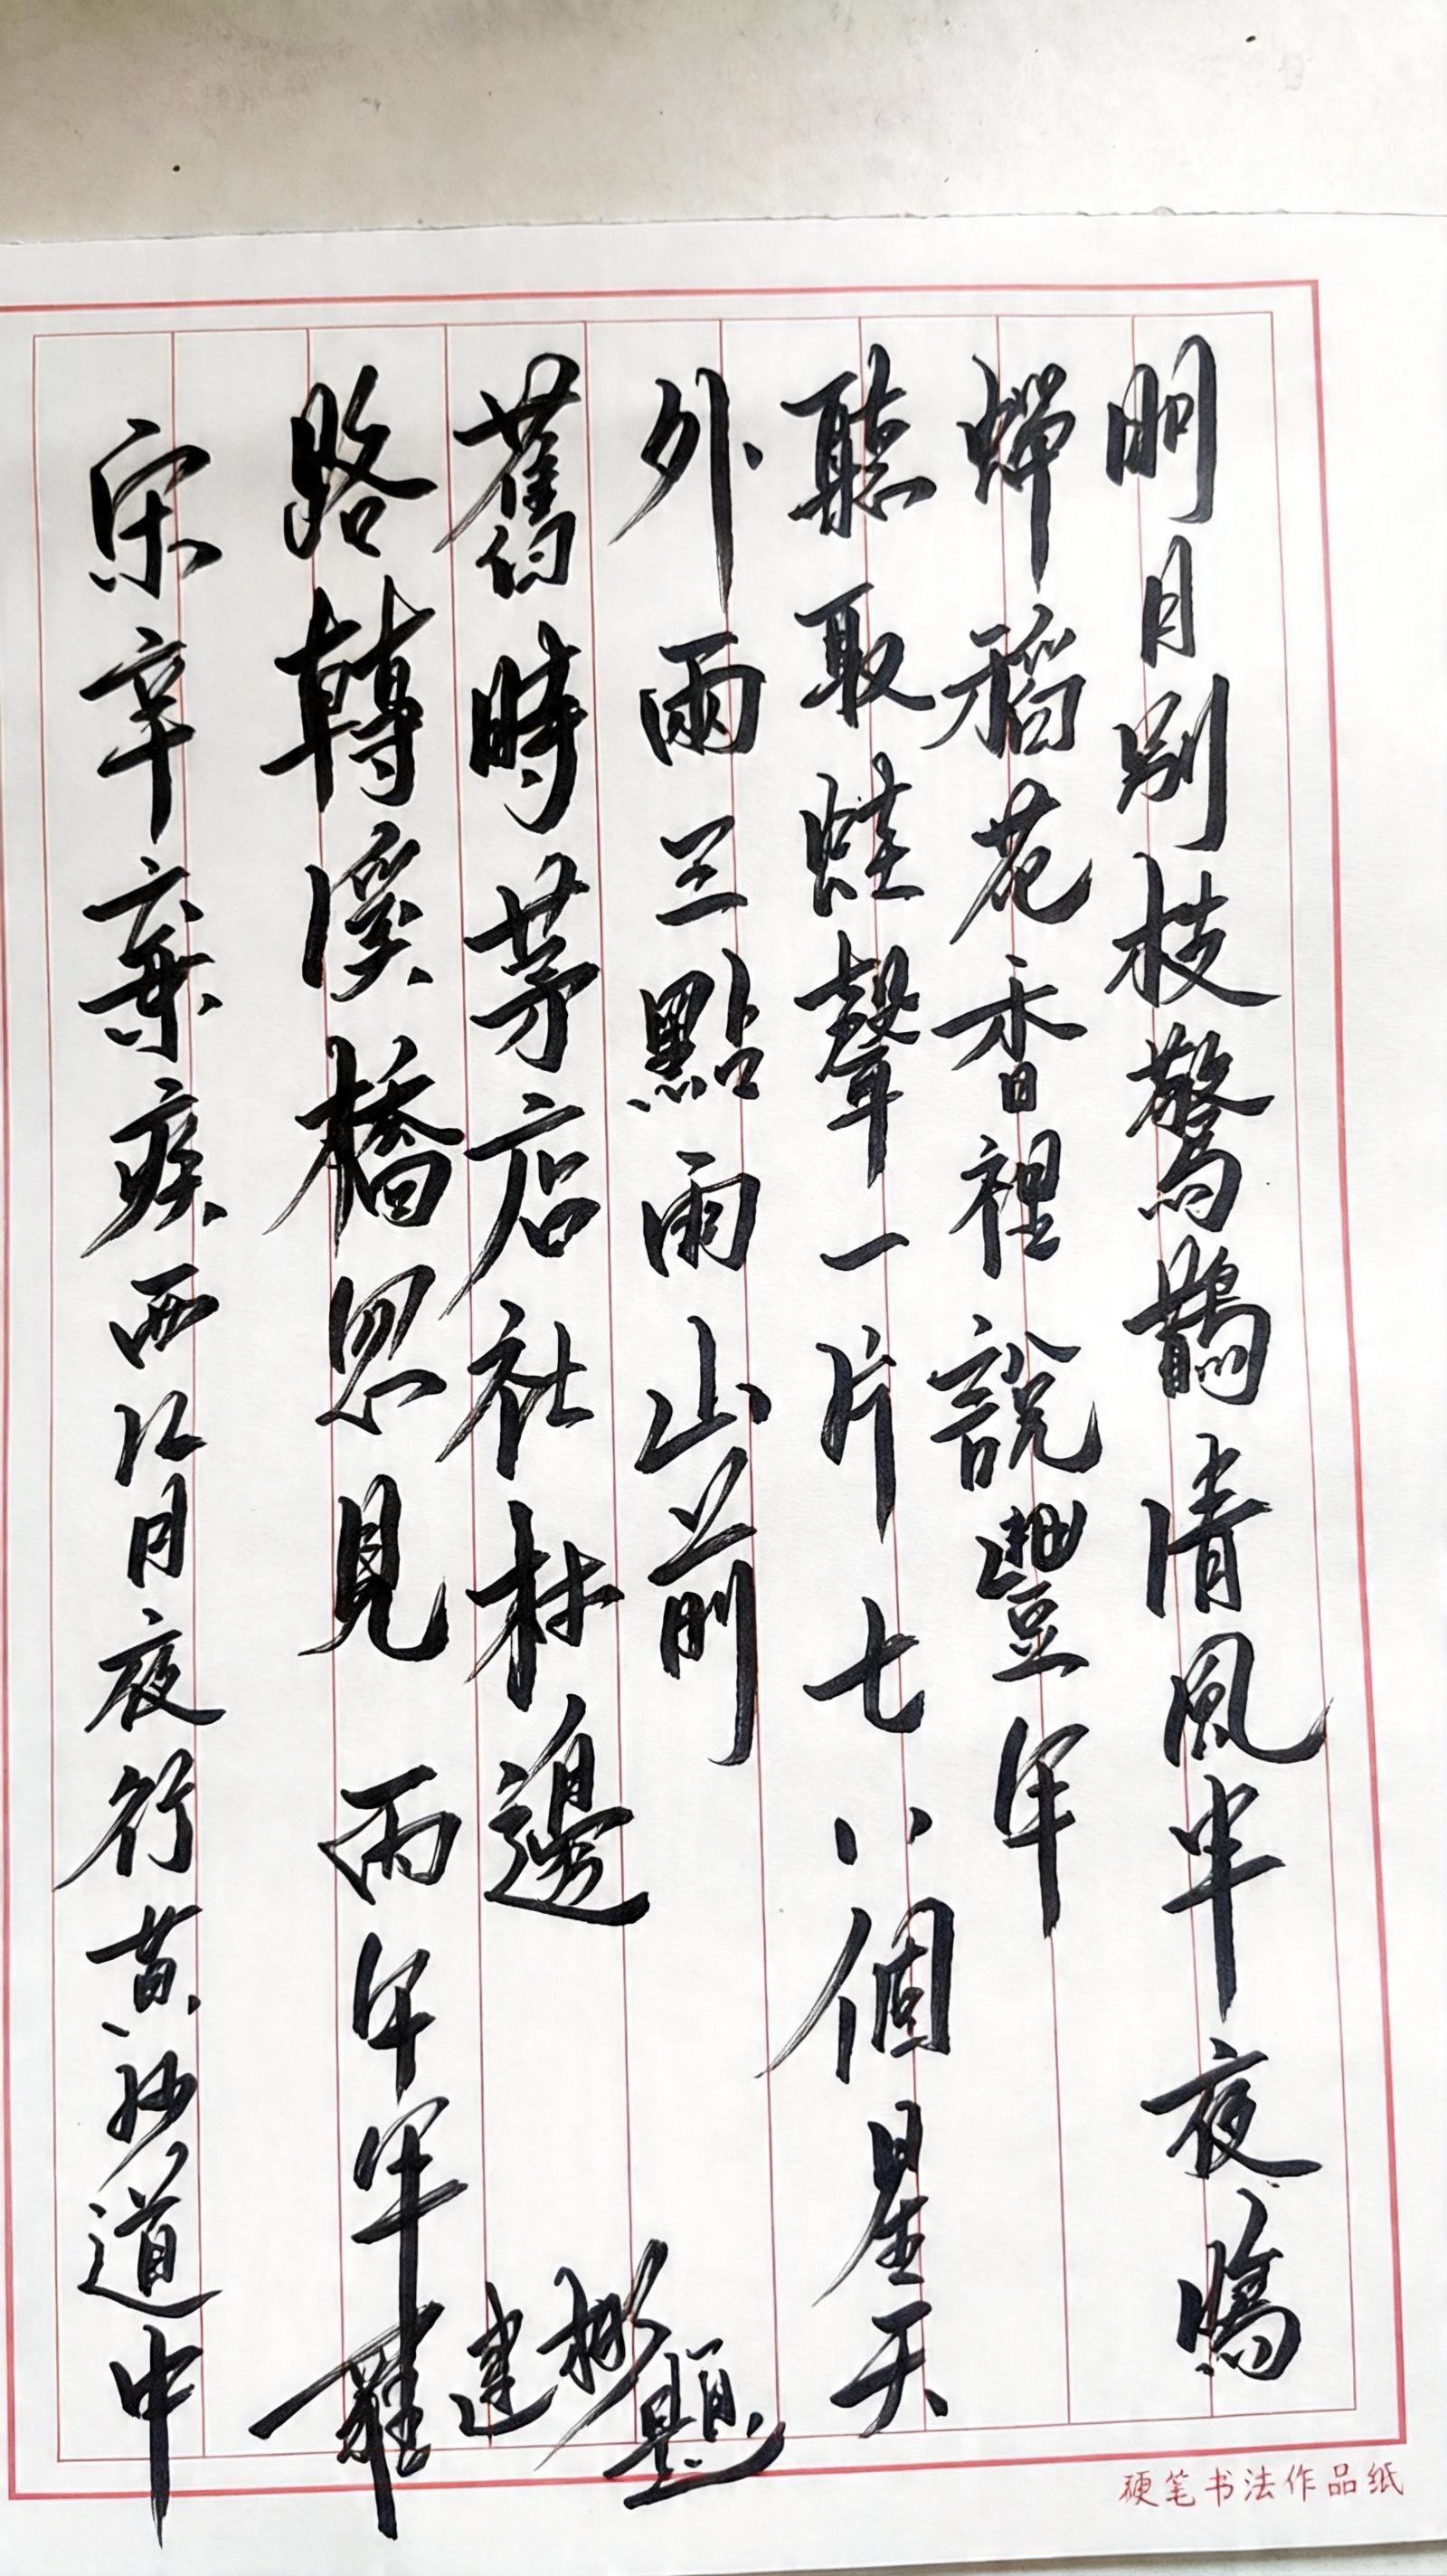 明月別枝驚鵲清風半夜鳴
蟬稻花香裡說豐年
聽取蛙聲一片七八個星天
外兩三點雨山前
舊時茅店社林邊
路轉溪橋忽見
宋辛棄疾西江月夜行黃沙道中
丙午年羅建彬題
硬笔书法作品纸